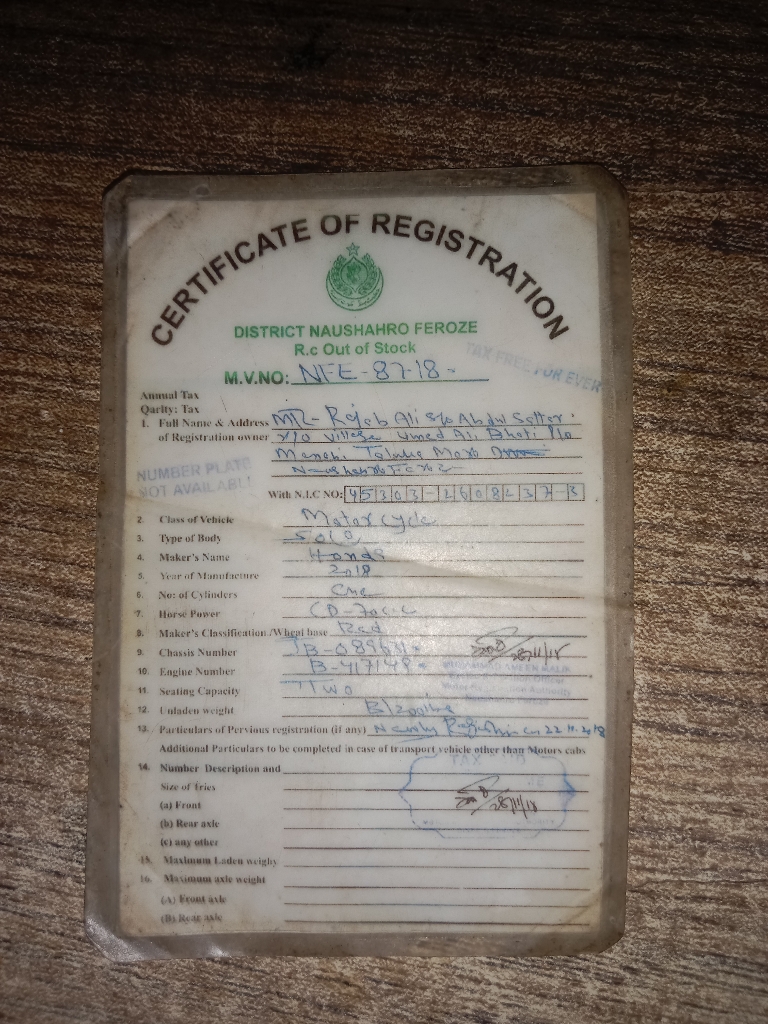 CERTIFICATE OF REGISTRATION
DISTRICT NAUSHAHRO FEROZE
R.c Out of Stock
TAX FREE FOR EVER
M.V.NO: NFE-87-18-
Annual Tax
Qarity: Tax
1. Full Name & Address Mr- Rajab Ali S/o Abdul Sattar
of Registration owner r/o village Umed Ali Bhati P/o
Taluka Moro
Naushahro Feroze
NUMBER PLATE
NOT AVAILABLE
With N.I.C NO:
2. Class of Vehicle Motor cycle
3. Type of Body Solo
4. Maker's Name Honda
5. Year of Manufacture 2018
6. No: of Cylinders One
7. Horse Power CD-70cc
8. Maker's Classification /Wheat base Red
9. Chassis Number
10. Engine Number
11. Seating Capacity Two
12. Unladen weight
13. Particulars of Pervious registration (if any) 22.11.2018
Additional Particulars to be completed in case of transport vehicle other than Motors cabs
14. Number Description and
TAX
Size of Tries
(a) Front 28/11/18
(b) Rear axle
(c) any other
15. Maximum Laden weighy
16. Maximum axle weight
(A) Front axle
(B) Rear axle